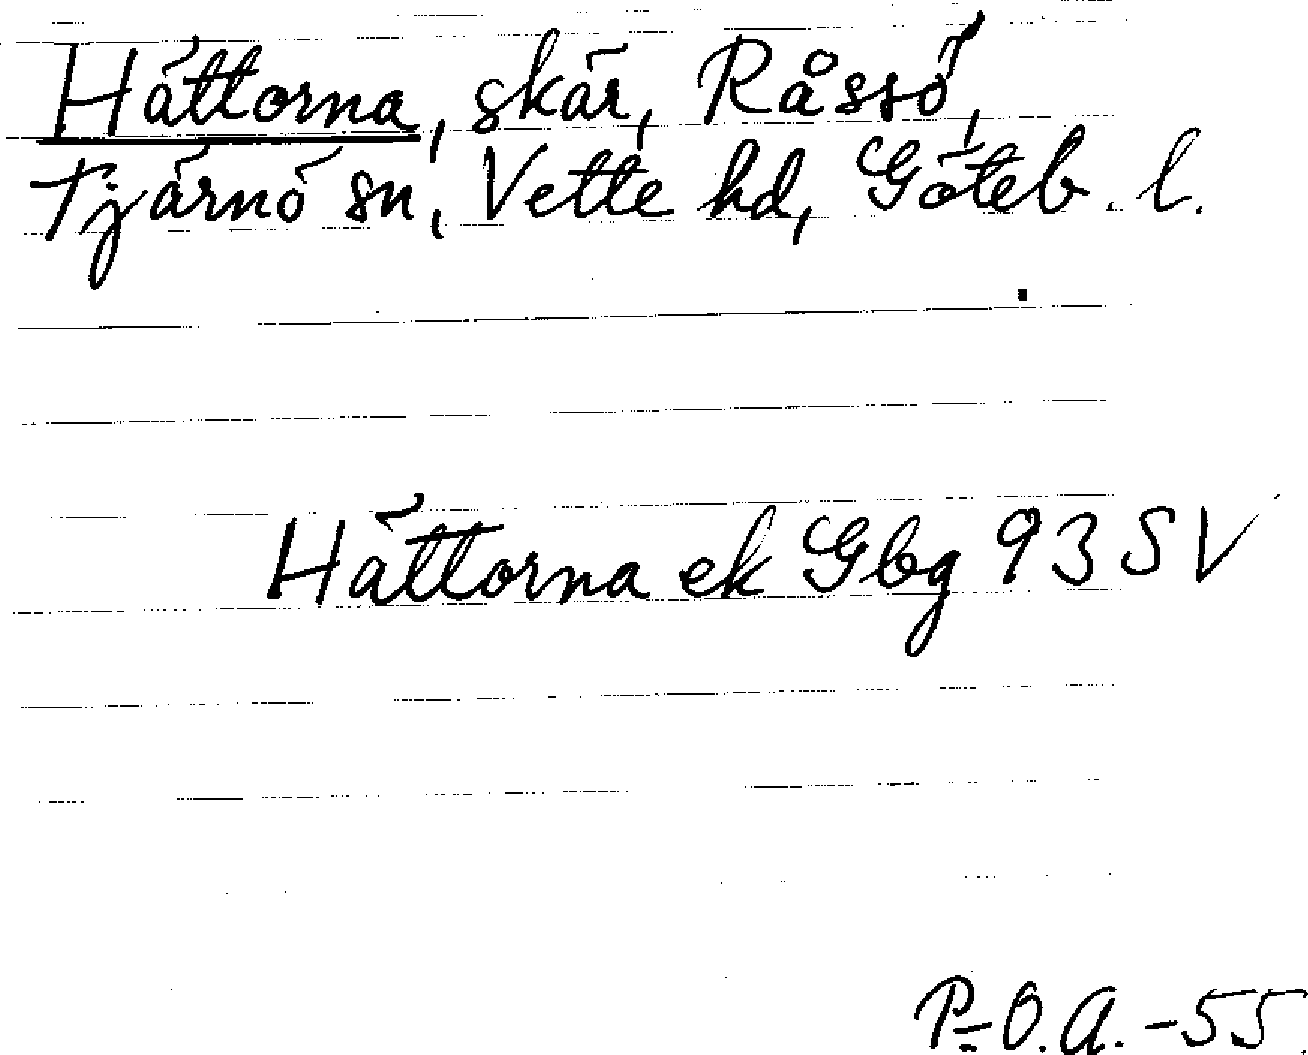 Hättorna, skär, Råssö,
Tjärnö sn, Vette hd, Göteb. l.
Hättorna ek Gbg 93 SV
P-O.A. -55